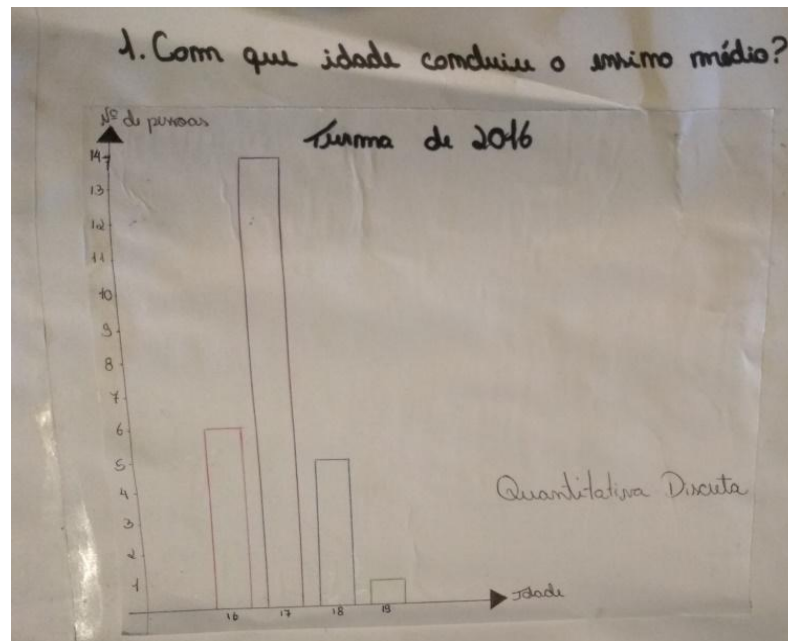 1. Com que idade concluiu o ensino médio?
Nº de pessoas
Turma de 2016
14
13
12
11
10
9
8
7
6
5
4
3
2
1
Quantitativa Discreta
16 17 18 19
Idade